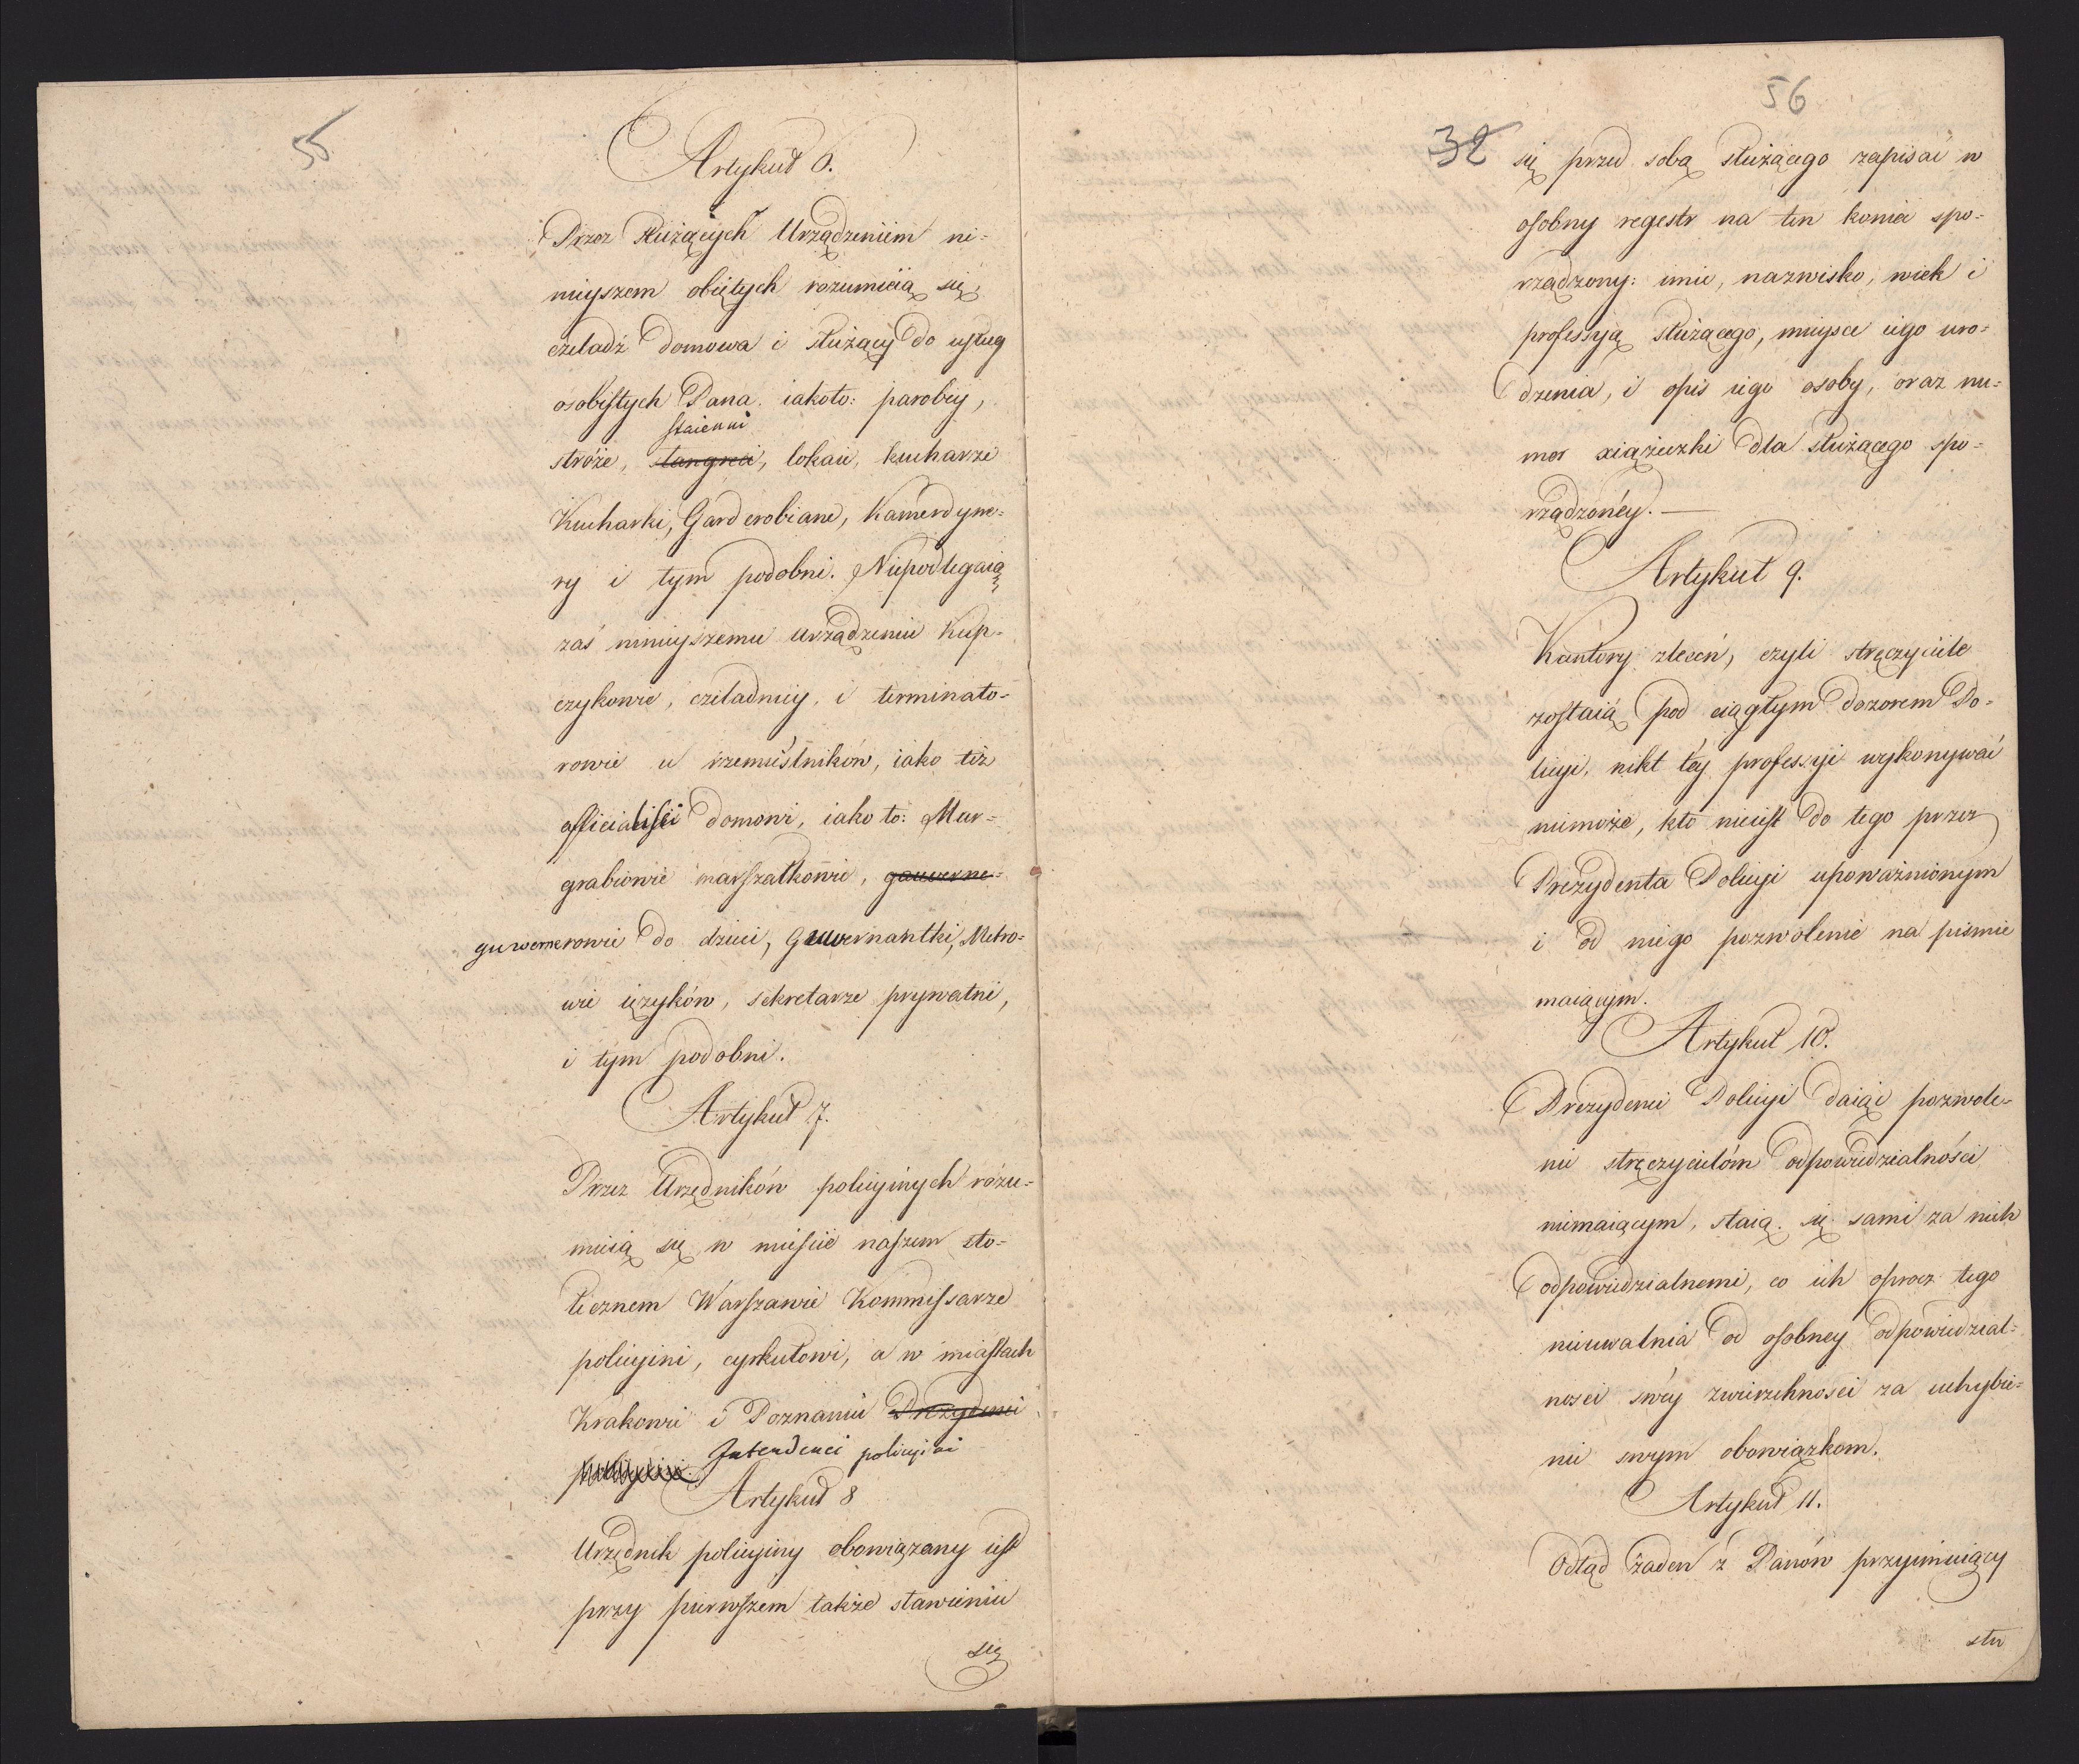 55
Artykuł 6.
Przez służących Urządzeniem ni-
nieyszem obiętych rozumieią się,
czeladź domowa i służący do usług
osobistych Pana iakoto: parobcy,
staienni
stróże, stangreci, lokaie, kucharze
Kucharki, Garderobiane, Kamerdyne-
ry i tym podobni. Niepodlegaią
zaś ninieyszemu urządzeniu Kup-
czykowie, czeladnicy, i terminato-
rowie u rzemieślników, iako też
officialiści domowi, iako to: Mur-
grabiowie marszałkowie, gouverne-
guwernerowie do dzieci, Guwernantki, Metro-
wie ięzyków, sekretarze prywatni,
i tym podobni.
Artykuł 7.
Przez Urzędników policyinych rozu-
mieią się w mieście naszem sto-
łecznem Warszawie Kommissarze
policyini, cyrkułowi, a w miastach
Krakowie i Poznaniu Prezydenci
policyini. Intendenci policyini
Artykuł 8
Urzędnik policyiny obowiązany iest
przy pierwszem także stawieniu
się
56
32
się przed sobą służącego zapisać w
osobny regestr na ten koniec spo-
rządzony: imie, nazwisko, wiek i
professyą służącego, mieysce iego uro-
dzenia, i opis iego osoby, oraz nu-
mer xiążeczki dla służącego spo-
rządzonéy. —
Artykuł 9.
Kantory zleceń, czyli stręczyciele
zostaią pod ciągłym dozorem Po-
licyi, nikt téy professyi wykonywać
niemoże, kto nieiest do tego przez
Prezydenta Policyi upoważnionym
i od niego pozwolenie na pismie
maiącym.
Artykuł 10.
Prezydenci Policyi daiąc pozwole-
nie stręczycielóm odpowiedzialności
niemaiącym, staią się sami za nich
odpowiedzialnemi, co ich oprócz tego
nieuwalnia od osobney odpowiedzial-
ności swéy zwierzchności za uchybie-
nie swym obowiązkom.
Artykuł 11.
Odtąd żaden z Panów przyimuiący
słu